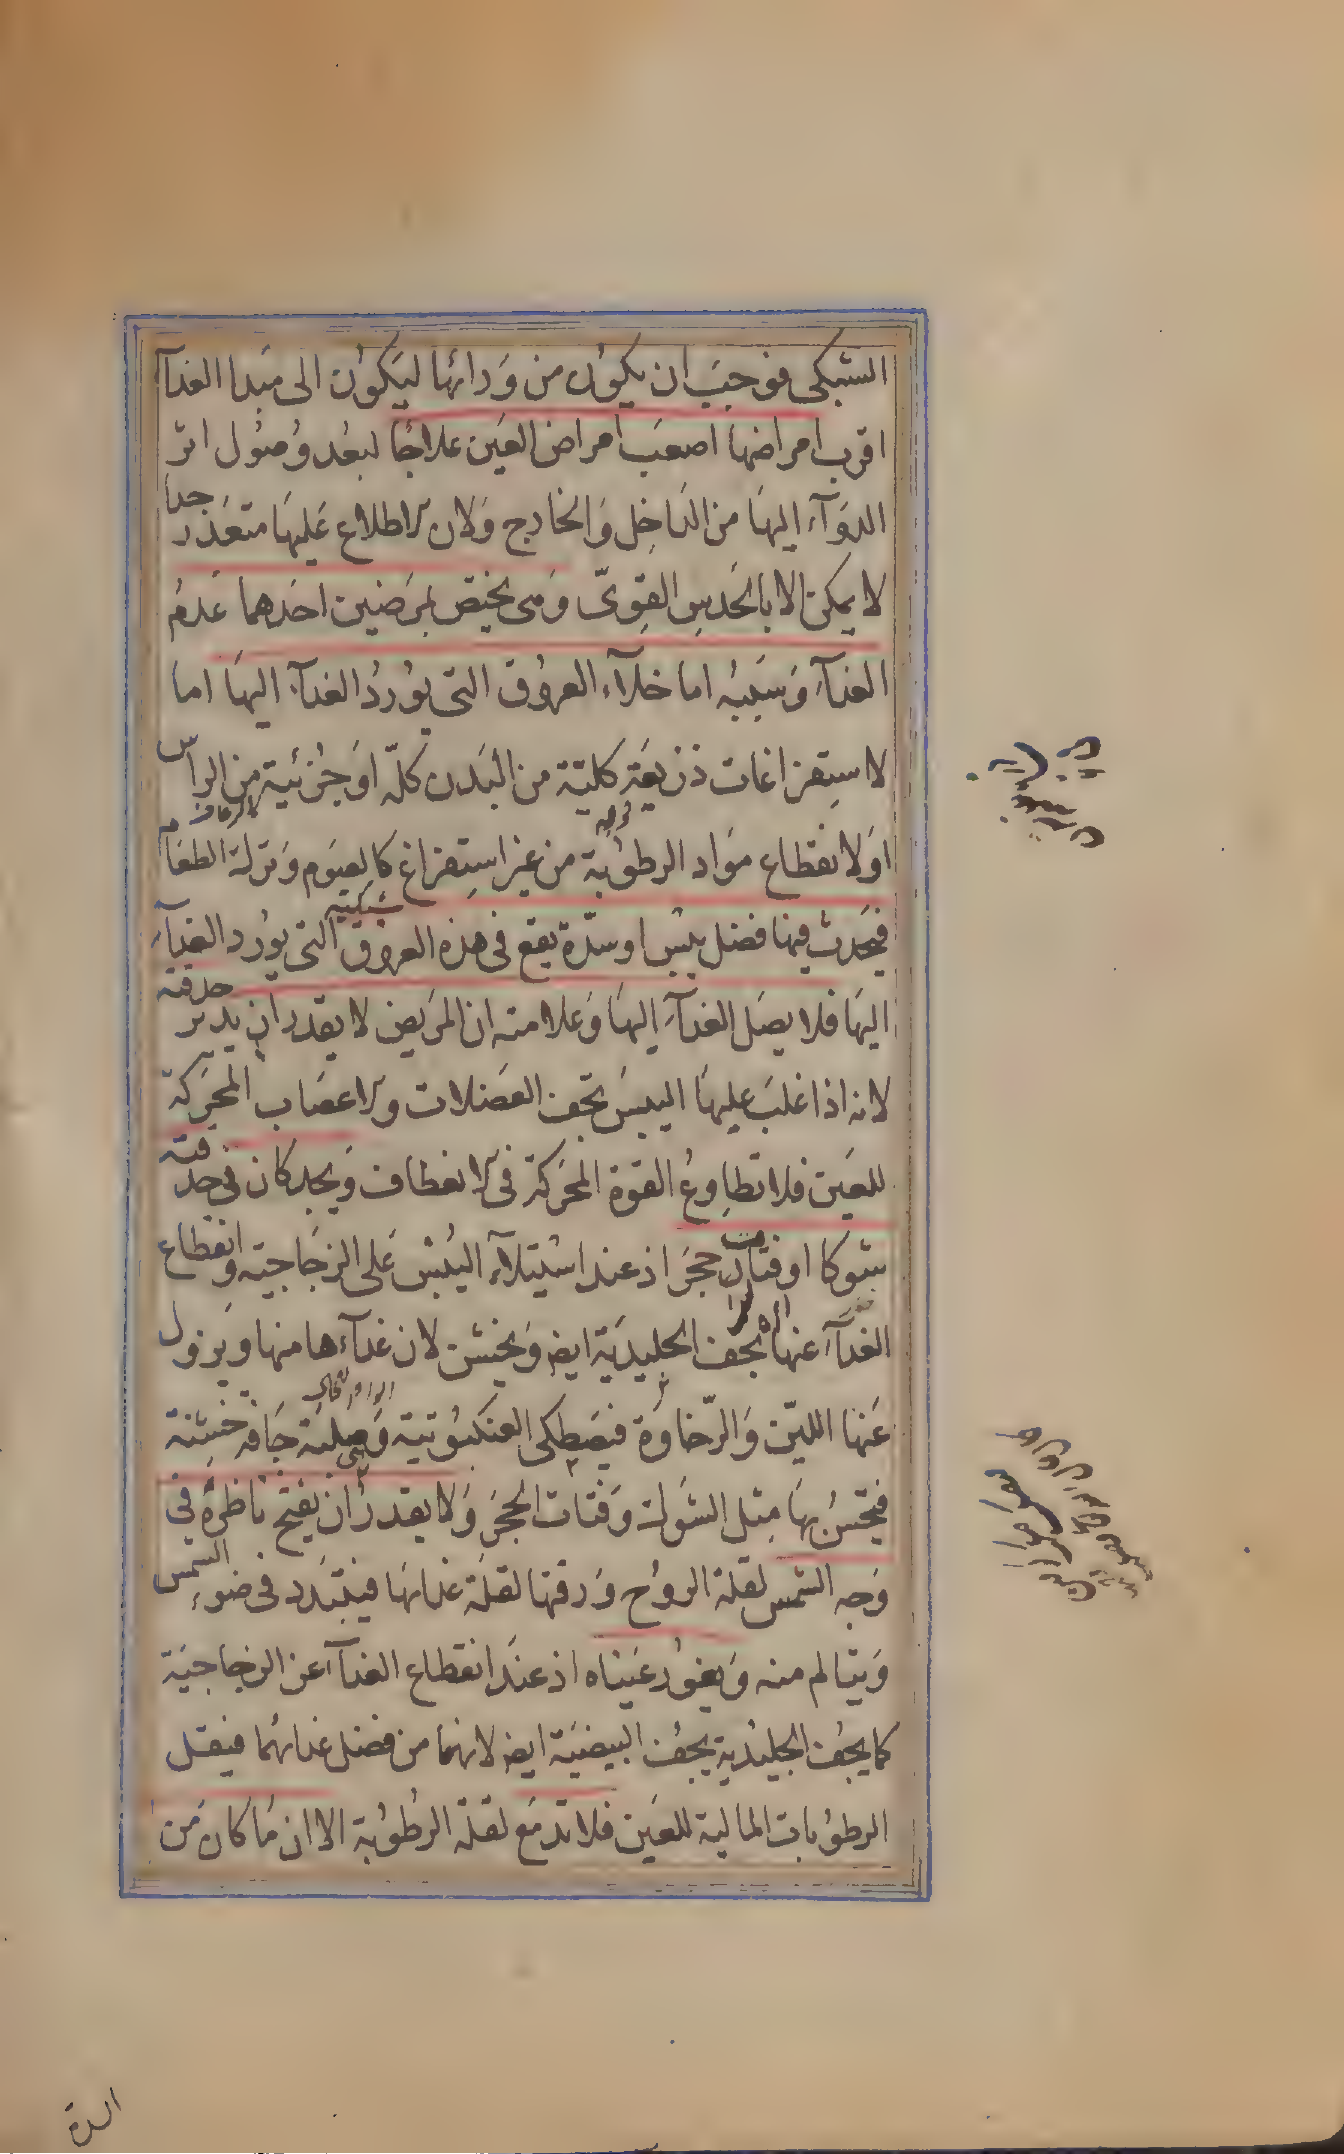 الشبكى فوجب ان يكون من ورائها ليكون الى مبدا الغذآ
اقرب امراضها اصعب امراض العين علاجًا لبعد وصول اثر
الدوآء اليها من الداخل والخارج ولان الاطلاع عليها متعذر جدا
لا يمكن الا بالحدس القوىّ وهى يختص بمرضين احدهما عدم
الغذآء وسببه اما خلآء العروق التى يورد الغذآء اليها اما
لاستفراغات ذريعة كلية من البدن كلّه او جزئية من الراس
كالرعاف
او لانقطاع مواد الرطوبة من غير استفراغ كالصوم وترك الطعام
فيحدث فيها فضل يبس او سدّة يقع فى هذه العروق الشبكية التى يورد الغذآء
اليها فلا يصل الغذآء اليها وعلامته ان المريض لا يقدر ان يدير حدقته
لانه اذا غلب عليها اليبس تجف العضلات والاعصاب المحركة
للعين فلا تطاوع القوة المحركة فى الانعطاف ويجد كان فى حدقته
شوكا او فتات حجر اذ عند استيلآء اليبس على الزجاجية وانقطاع
الغذآء عنها يجف الجليدية ايض ويخشن لان غذآءها منها ويزول
عنها اللين والرّخاوة فيصطكى العنكبوتية وهى صلبة جافة خشنة
فيحسّ بها مثل الشوك وفتات الحجر ولا يقدر ان يفتح ناظره فى
وجه الشمس لقلة الروح ورقتها لقلة غذائها فيتبدد فى ضوء الشمس
ويتالم منه ويغور عيناه اذ عند انقطاع الغذآء عن الزجاجية
كما يجف الجليدية يجف البيضية ايض لانهما من فضل غذائهما فيقل
الرطوبات المالية للعين فلا تدمع لقلة الرطوبة الا ان ما كان من